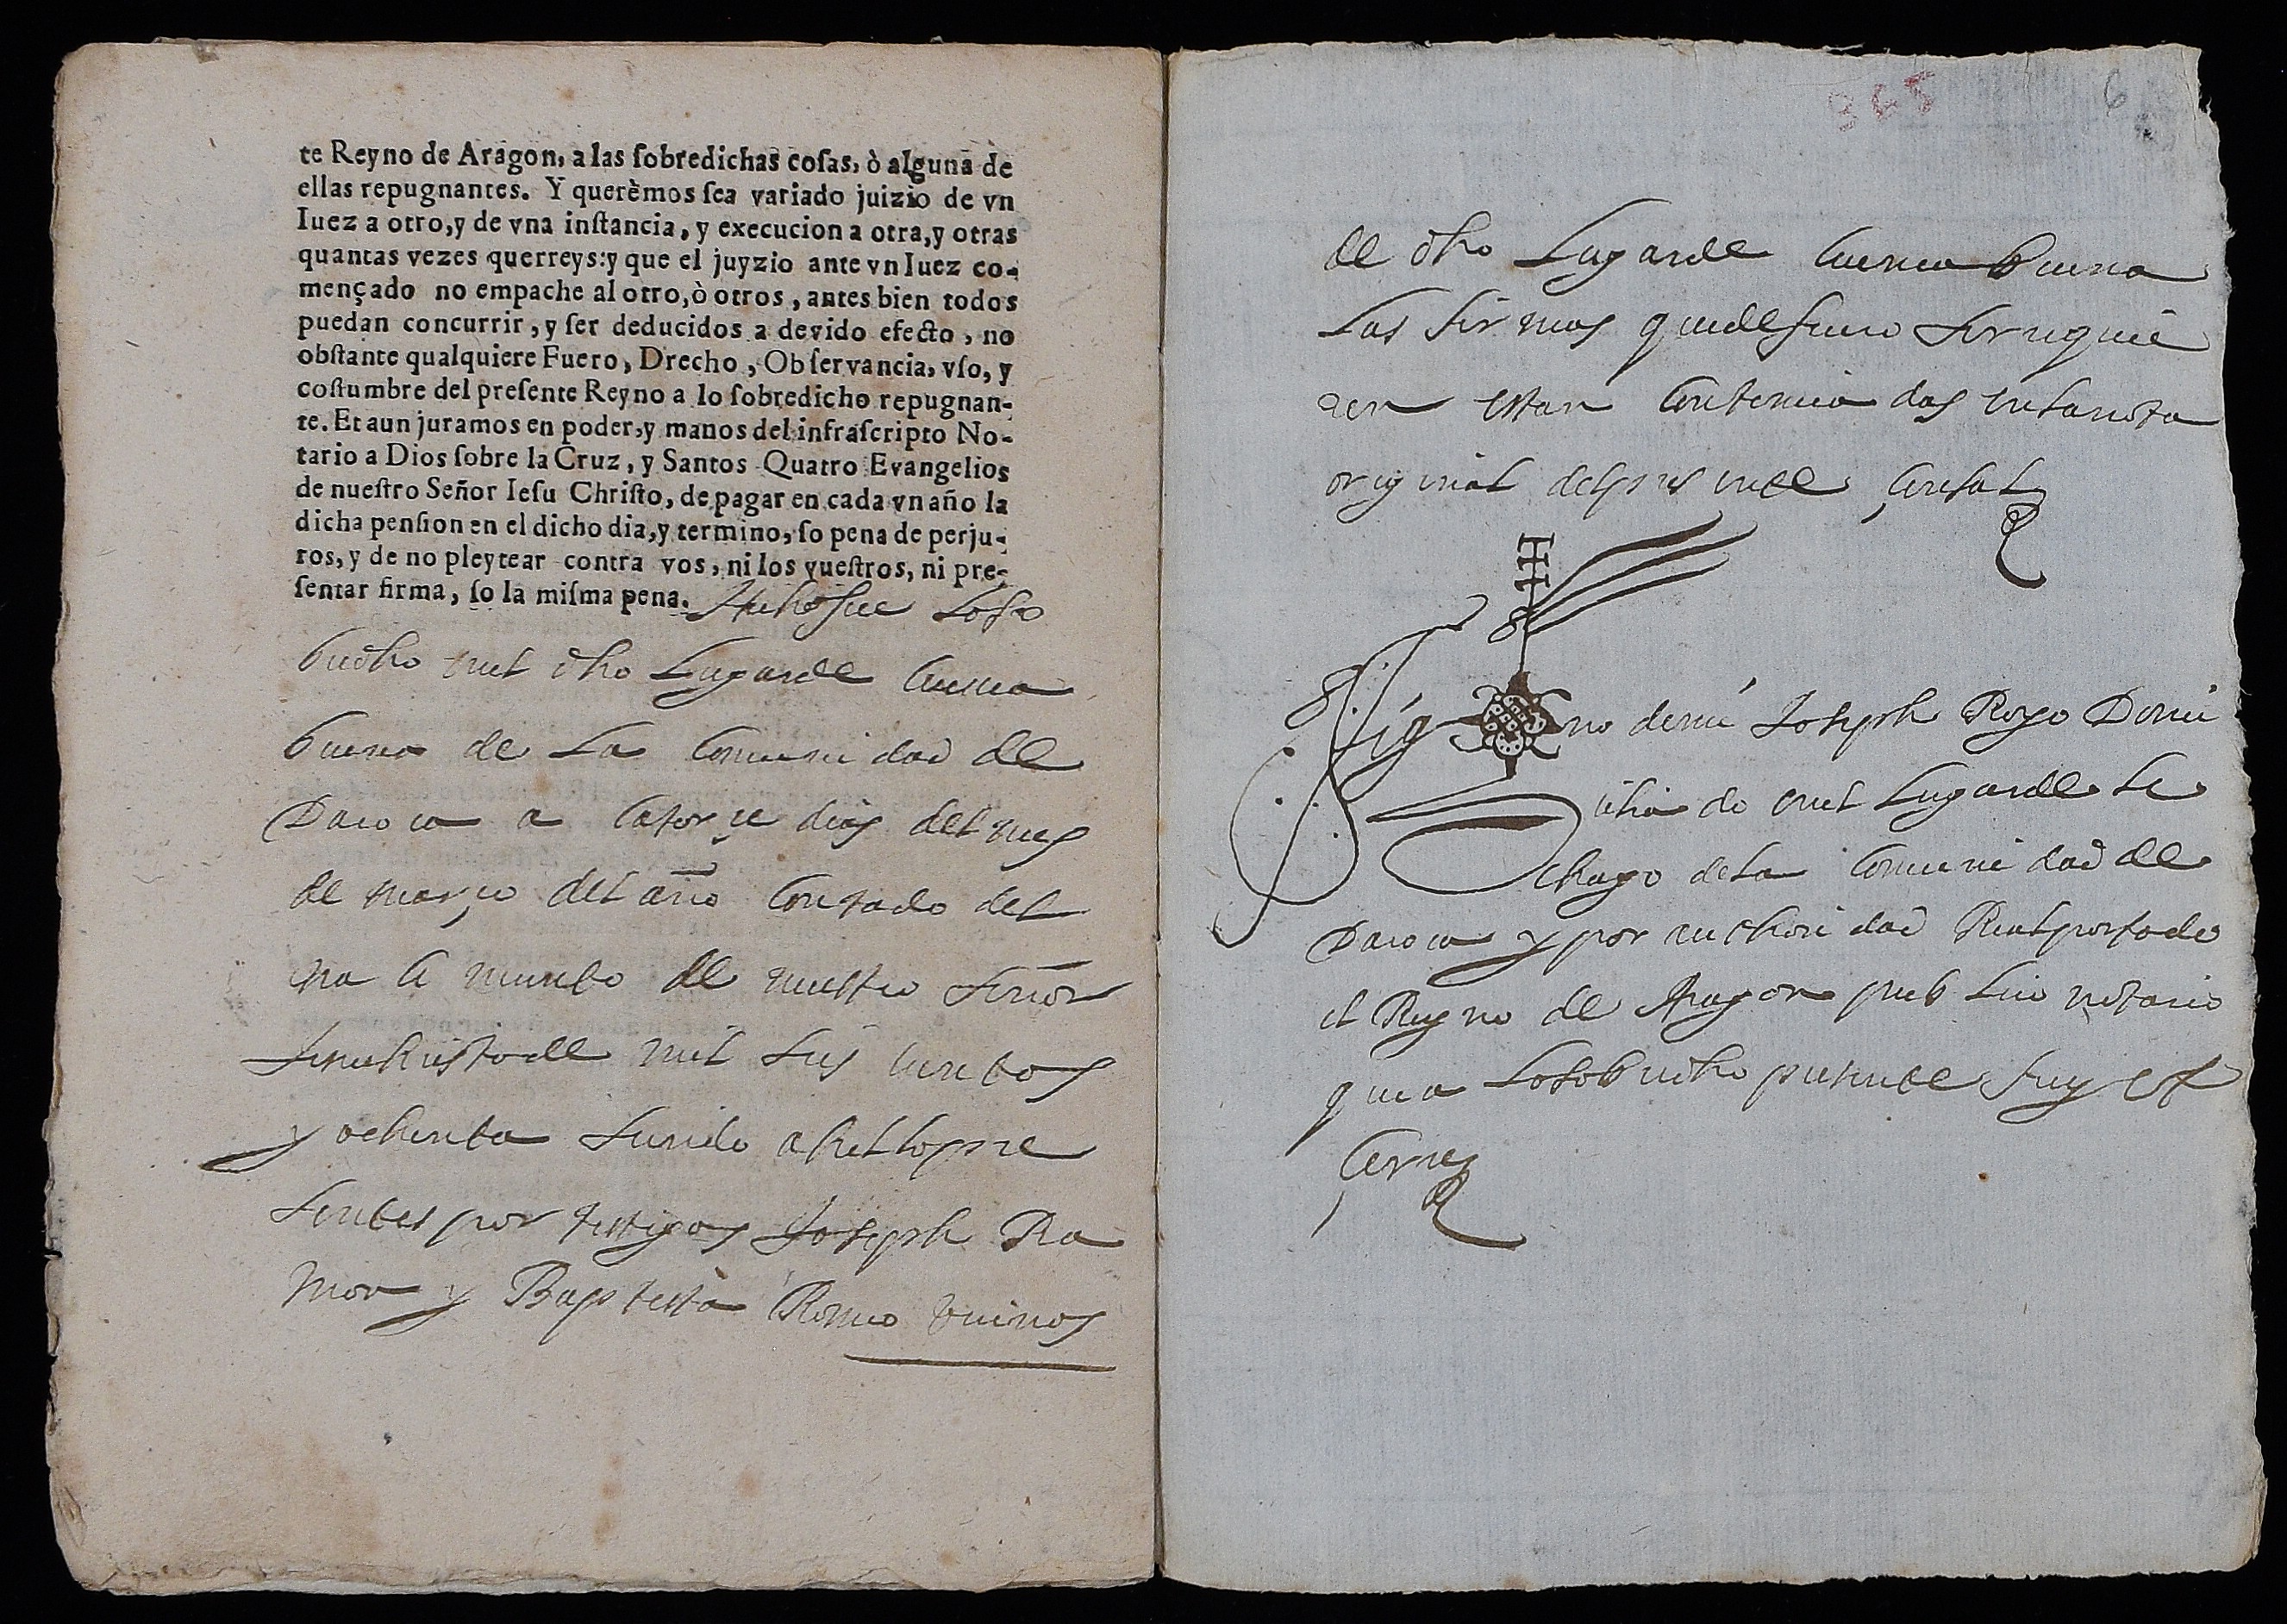 te Reyno de Aragon, a las ſobredichas coſas, ò alguna de
ellas repugnantes. Y querèmos ſea variado juizio de vn
Iuez a otro, y de vna inſtancia, y execucion a otra, y otras
quantas vezes querreys: y que el juyzio ante vn Iuez co-
mençado no empache al otro, ò otros, antes bien todos
puedan concurrir, y ſer deducidos a devido efecto, no
obſtante qualquiere Fuero, Drecho, Obſervancia, vſo, y
coſtumbre del preſente Reyno a lo ſobredicho repugnan-
te. Et aun juramos en poder, y manos del infraſcripto No-
tario a Dios ſobre la Cruz, y Santos Quatro Evangelios
de nueſtro Señor Ieſu Chriſto, de pagar en cada vn año la
dicha penſion en el dicho dia, y termino, ſo pena de perju-
ros, y de no pleytear contra vos, ni los vueſtros, ni pre-
ſentar firma, ſo la miſma pena. Hecho fue Loso
bredho enel dho Lugar de Cuenca
buena de La Comunidad de
Daroca a Catorçe dias del mes
de março del año Contado del
na ci miento de nuestro Señor
Jesuchristo de mil Seis cientos
y ochenta Siendo a hello pre
Sentes por testigos Joseph Ra
mon y Baptista Romeo vecinos
365 6
de dho Lugar de Cuenca buena
Las firmas que de fuero Se requie
ren estan Continua das en la nota
original del presente Censal
Sig no de mi Joseph Royo Domi
cilia do enel Lugar de Le
chago de la Comuni dad de
Daroca y por authori dad Real por todo
el Reyno de Aragon pub Lico notario
que a Lo sobredho presente fuy et
Cerre